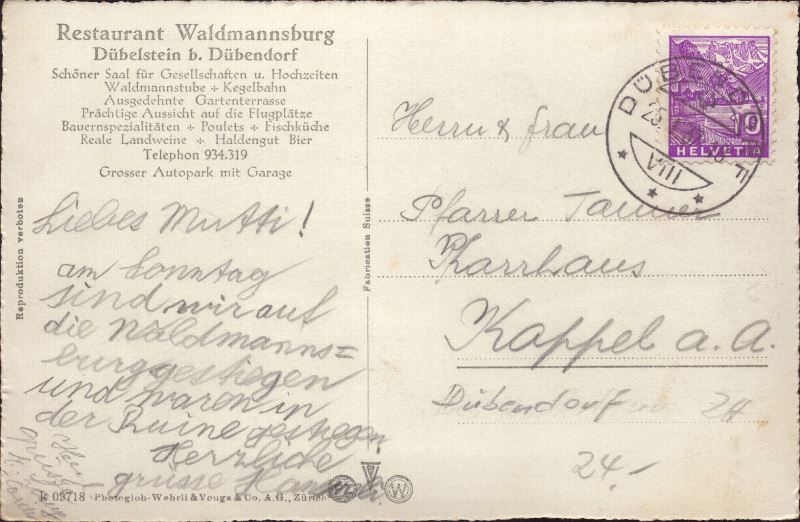 Restaurant Waldmannsburg
Dübelstein b. Dübendorf
Schöner Saal für Gesellschaften u. Hochzeiten
Waldmannstube + Kegelbahn
Ausgedehnte Gartenterrasse
Prächtige Aussicht auf die Flugplätze
Bauernspezialitäten + Poulets + Fischküche
Reale Landweine + Haldengut Bier
Telephon 934.319
Grosser Autopark mit Garage
Liebes Mutti!
am Sonntag
sind wir auf
die Waldmanns=
burg gestiegen
und waren in
der Ruine gestiegen
Herzliche
grüsse
k 09718 Photoglob-Wehrli & Vouga & Co. A.G., Zürich
Reproduktion verboten
Fabrication Suisse
Herrn & Frau
Pfarrer Tanner
Pfarrhaus
Kappel a. A.
Dübendorf
24.-
10
HELVETIA
VIII